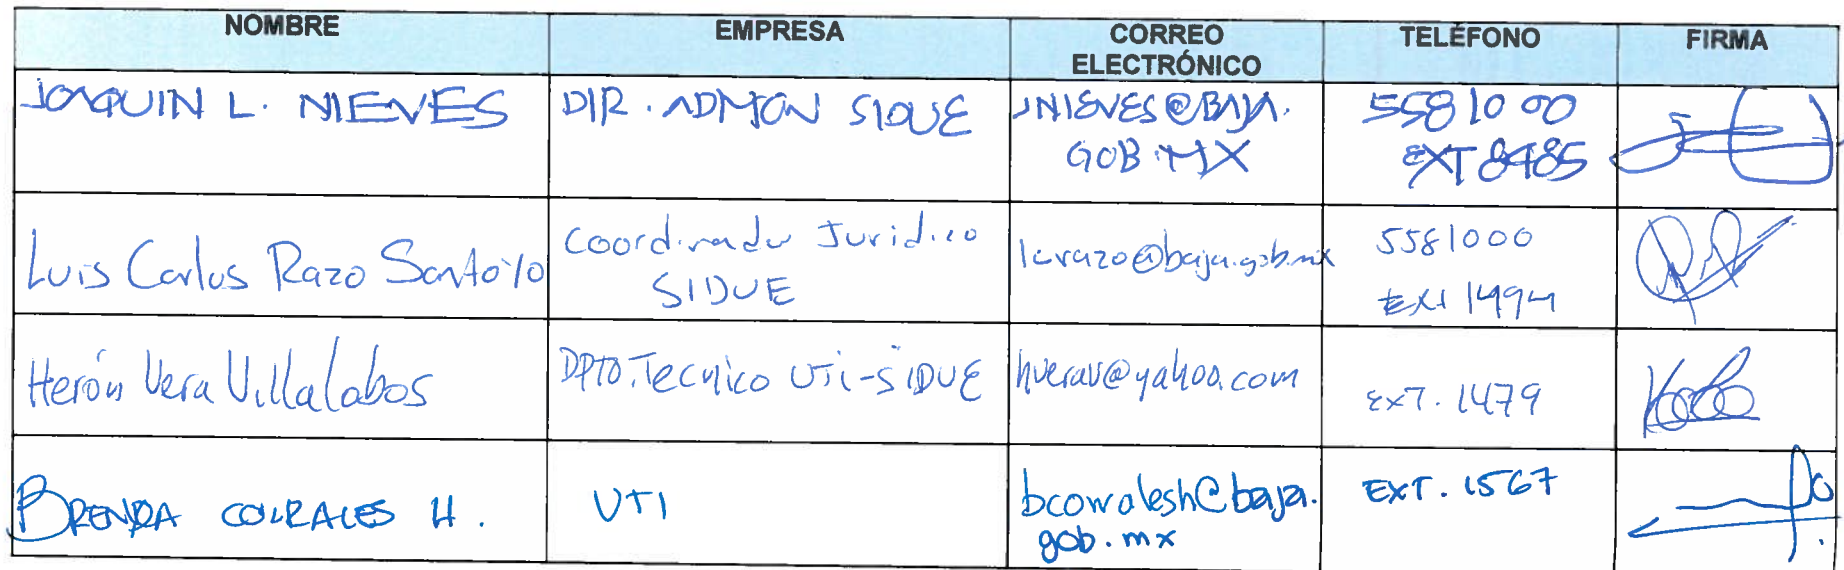 NOMBRE EMPRESA CORREO ELECTRÓNICO TELÉFONO FIRMA
JOAQUIN L. NIEVES DIR. ADMON SIDUE JNIEVES@BAJA. 5581000
GOB.MX EXT 8485
Luis Carlos Razo Santoyo Coordinador Juridico lcrazo@baja.gob.mx 5581000
SIDUE EXT 1494
Herón Vera Villalobos DPTO. Tecnico UTi-SIDUE hverav@yahoo.com EXT. 1479
BRENDA CORRALES H. UTI bcorralesh@baja. EXT. 1567
gob.mx